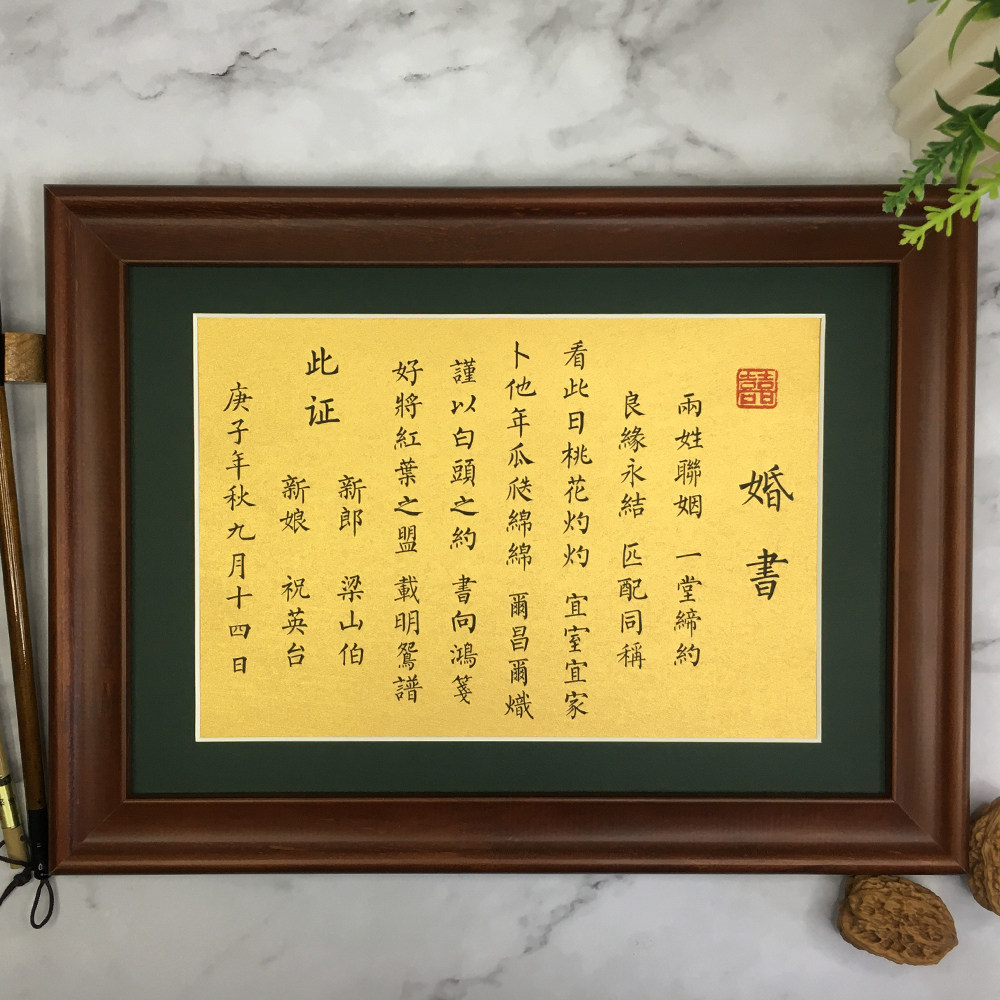 囍
婚書
兩姓聯姻 一堂締約
良緣永結 匹配同稱
看此日桃花灼灼 宜室宜家
卜他年瓜瓞綿綿 爾昌爾熾
謹以白頭之約 書向鴻箋
好將紅葉之盟 載明鴛譜
此证
新郎 梁山伯
新娘 祝英台
庚子年秋九月十四日